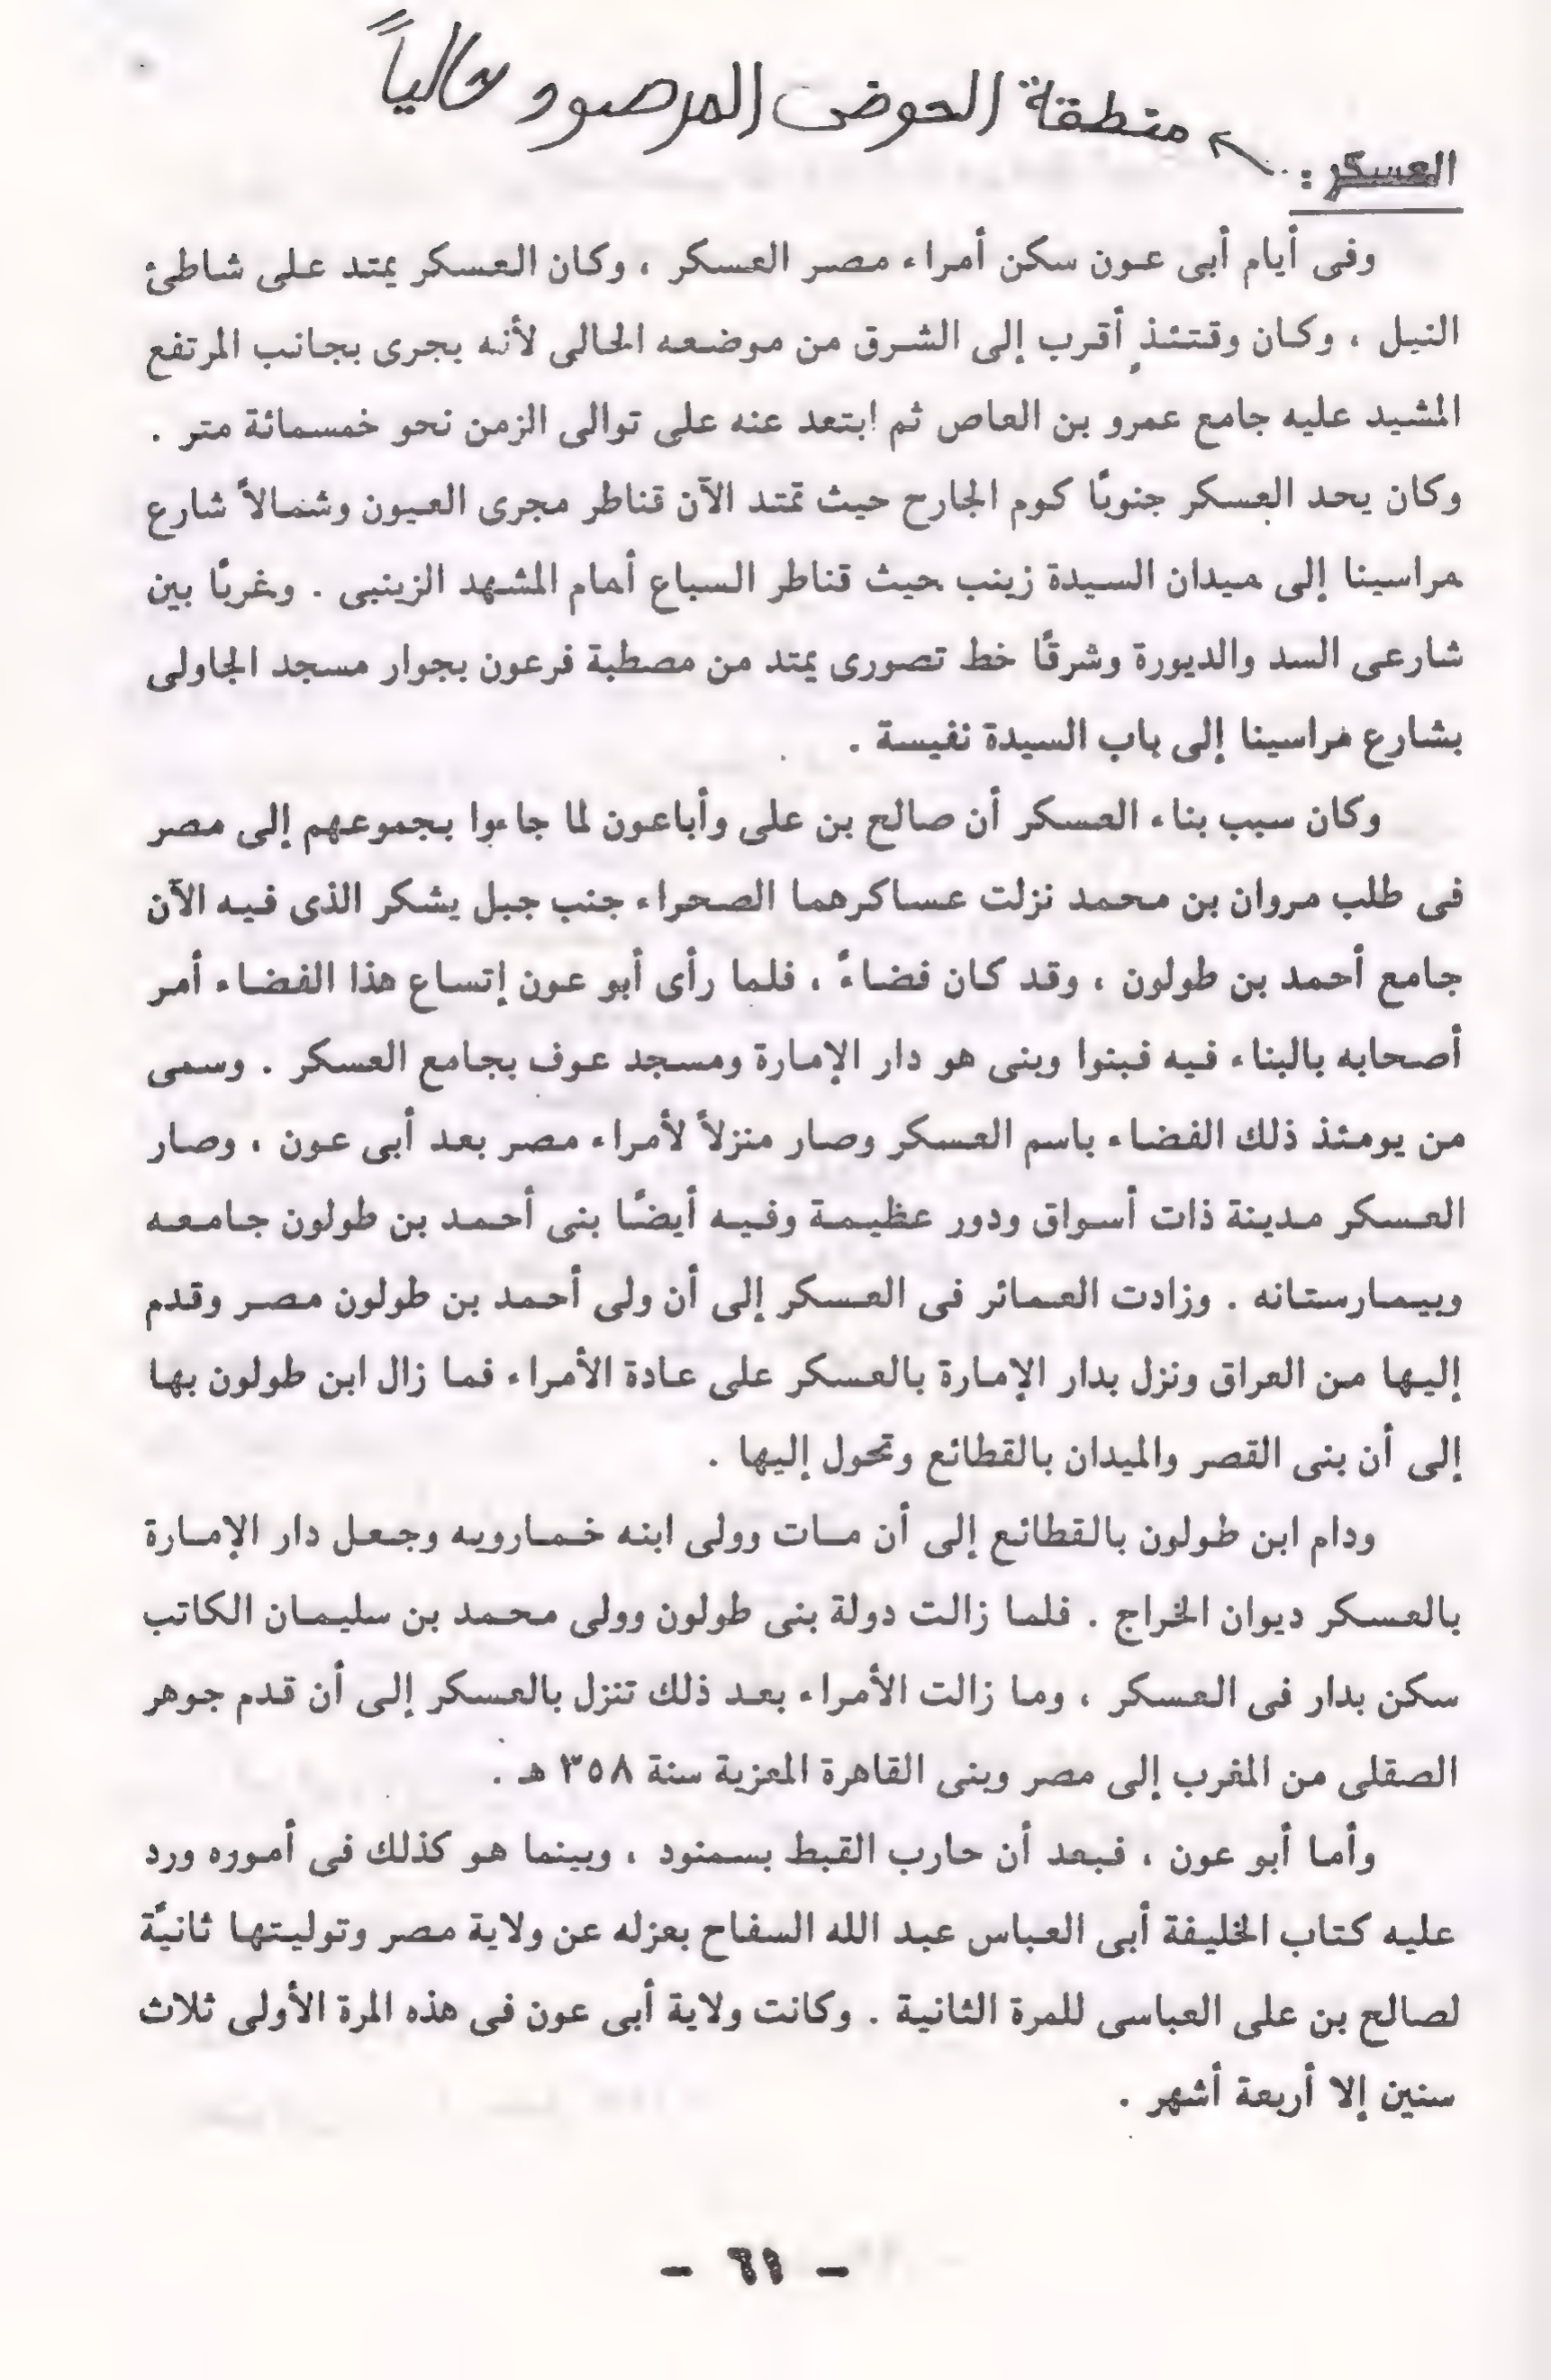 منطقة الحوض المرصود حالياً
العسكر :
وفى أيام أبى عون سكن أمراء مصر العسكر ، وكان العسكر يمتد على شاطئ
النيل ، وكان وقتئذٍ أقرب إلى الشرق من موضعه الحالى لأنه يجرى بجانب المرتفع
المشيد عليه جامع عمرو بن العاص ثم ابتعد عنه على توالى الزمن نحو خمسمائة متر .
وكان يحد العسكر جنوبًا كوم الجارح حيث تمتد الآن قناطر مجرى العيون وشمالاً شارع
مراسينا إلى ميدان السيدة زينب حيث قناطر السباع أمام المشهد الزينبى . وغربًا بين
شارعى السد والديورة وشرقًا خط تصورى يمتد من مصطبة فرعون بجوار مسجد الجاولى
بشارع مراسينا إلى باب السيدة نفيسة .
وكان سبب بناء العسكر أن صالح بن على وأباعون لما جاءوا بجموعهم إلى مصر
فى طلب مروان بن محمد نزلت عساكرهما الصحراء جنب جبل يشكر الذى فيه الآن
جامع أحمد بن طولون ، وقد كان فضاءً ، فلما رأى أبو عون إتساع هذا الفضاء أمر
أصحابه بالبناء فيه فبنوا وبنى هو دار الإمارة ومسجد عوف بجامع العسكر . وسمى
من يومئذ ذلك الفضاء باسم العسكر وصار منزلاً لأمراء مصر بعد أبى عون ، وصار
العسكر مدينة ذات أسواق ودور عظيمة وفيه أيضًا بنى أحمد بن طولون جامعه
وبيمارستانه . وزادت العمائر فى العسكر إلى أن ولى أحمد بن طولون مصر وقدم
إليها من العراق ونزل بدار الإمارة بالعسكر على عادة الأمراء فما زال ابن طولون بها
إلى أن بنى القصر والميدان بالقطائع وتحول إليها .
ودام ابن طولون بالقطائع إلى أن مات وولى ابنه خمارويه وجعل دار الإمارة
بالعسكر ديوان الخراج . فلما زالت دولة بنى طولون وولى محمد بن سليمان الكاتب
سكن بدار فى العسكر ، وما زالت الأمراء بعد ذلك تنزل بالعسكر إلى أن قدم جوهر
الصقلى من المغرب إلى مصر وبنى القاهرة المعزية سنة ٣٥٨ هـ .
وأما أبو عون ، فبعد أن حارب القبط بسمنود ، وبينما هو كذلك فى أموره ورد
عليه كتاب الخليفة أبى العباس عبد الله السفاح بعزله عن ولاية مصر وتوليتها ثانيًة
لصالح بن على العباسى للمرة الثانية . وكانت ولاية أبى عون فى هذه المرة الأولى ثلاث
سنين إلا أربعة أشهر .
- ٦١ -